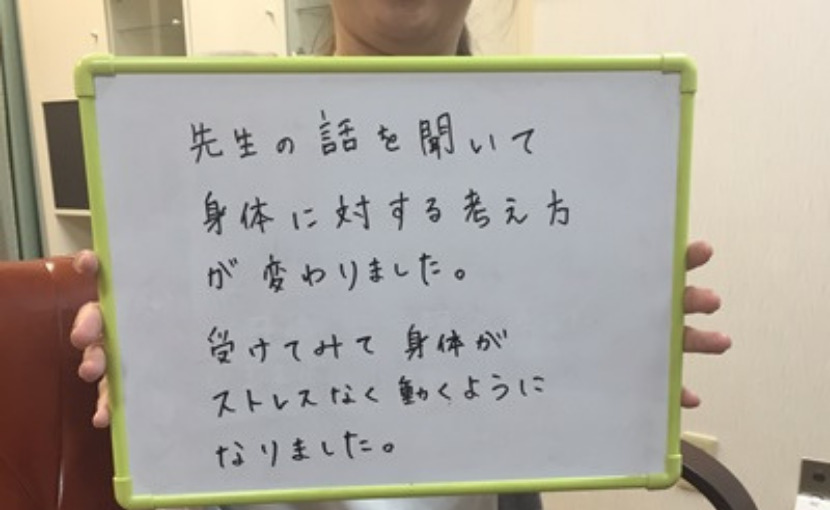 先生の話を聞いて
身体に対する考え方
が変わりました。
受けてみて身体が
ストレスなく動くように
なりました。